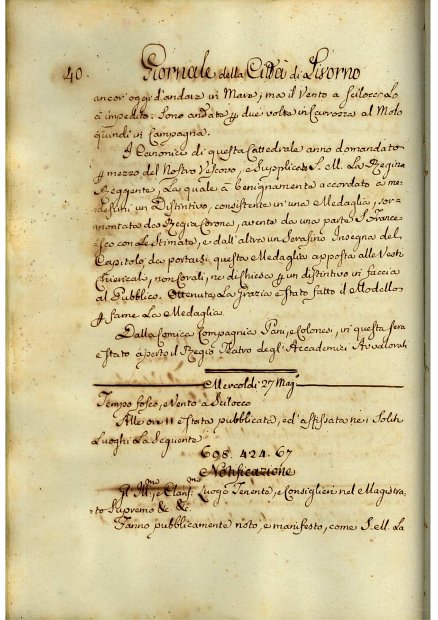 40. Giornale della Città di Livorno
ancor' oggi d'andare in Mare; ma il Vento a Scilocco Lo
à impedito: Sono andata p due volte in Carrozza al Molo
quindi in Campagna.
I Canonici di questa Cattedrale anno domandato
p mezzo del Nostro Vescovo, e Supplicata S. M. La Regina
Reggente, La quale à benignamente accordato a me-
desimi un Distintivo, consistente in una Medaglia, sor-
montata da Regia Corona, avente da una parte S. France-
sco con Le Stimate, e dall' altra un Serafino Insegna del
Capitolo, da portarsi questa Medaglia apposta alle Vesti
Chiericali, non Corali, nè di Chiesa p un distintivo in faccia
al Pubblico. Ottenuta La Grazia è stato fatto il Modello
p farne La Medaglia.
Dalla Comica Compagnia Pani, e Colonesi, in questa sera
è stato aperto il Regio Teatro degl' Accademici Avvalorati
Mercoldì 27 Magº
Tempo fosco, e Vento a Scilocco
Alle ore 11 è stata pubblicata, ed' affissata ne' Soliti
Luoghi La Seguente
608. 424. 67
Notificazione
Gl' Ill:mi, e Clariss:mi Luogo Tenente, e Consiglieri nel Magistra-
to Supremo &c. &c.
Fanno pubblicamente noto, e manifesto, come S. M. La